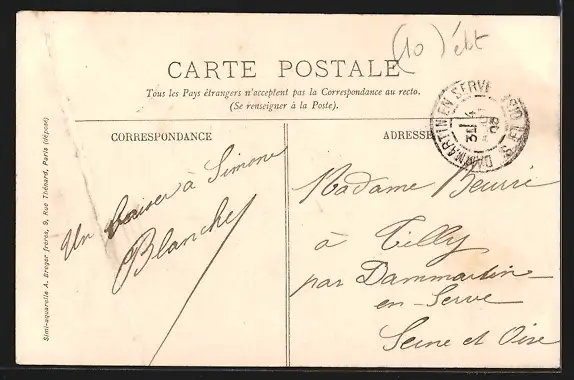 (10) ébt
CARTE POSTALE
Tous les Pays étrangers n'acceptent pas la Correspondance au recto.
(Se renseigner à la Poste).
CORRESPONDANCE
Un baiser à Simone
Blanche
ADRESSE
DAMMARTIN EN SERVE
Madame Beurié
à Tilly
par Dammartin-
en-Serve
Seine et Oise
Simili-aquarelle A. Breger frères, 9, Rue Thénard, Paris (déposé)